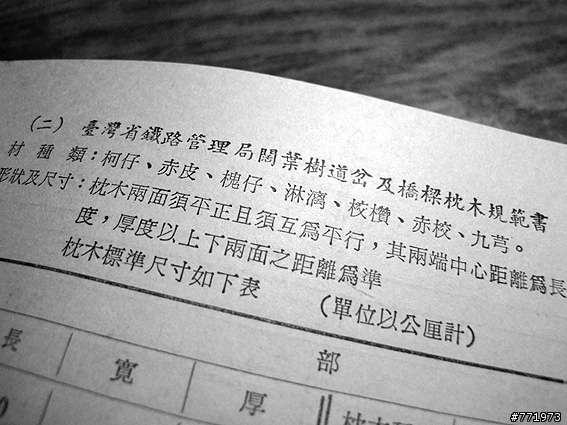 (二) 臺灣省鐵路管理局闊葉樹道岔及橋樑枕木規範書
材種類：柯仔、赤皮、槐仔、淋漓、校欑、赤校、九芎。
形狀及尺寸：枕木兩面須平正且須互為平行，其兩端中心距離為長
度，厚度以上下兩面之距離為準
枕木標準尺寸如下表 (單位以公厘計)
部
長 寬 厚 枕木
0
#771973